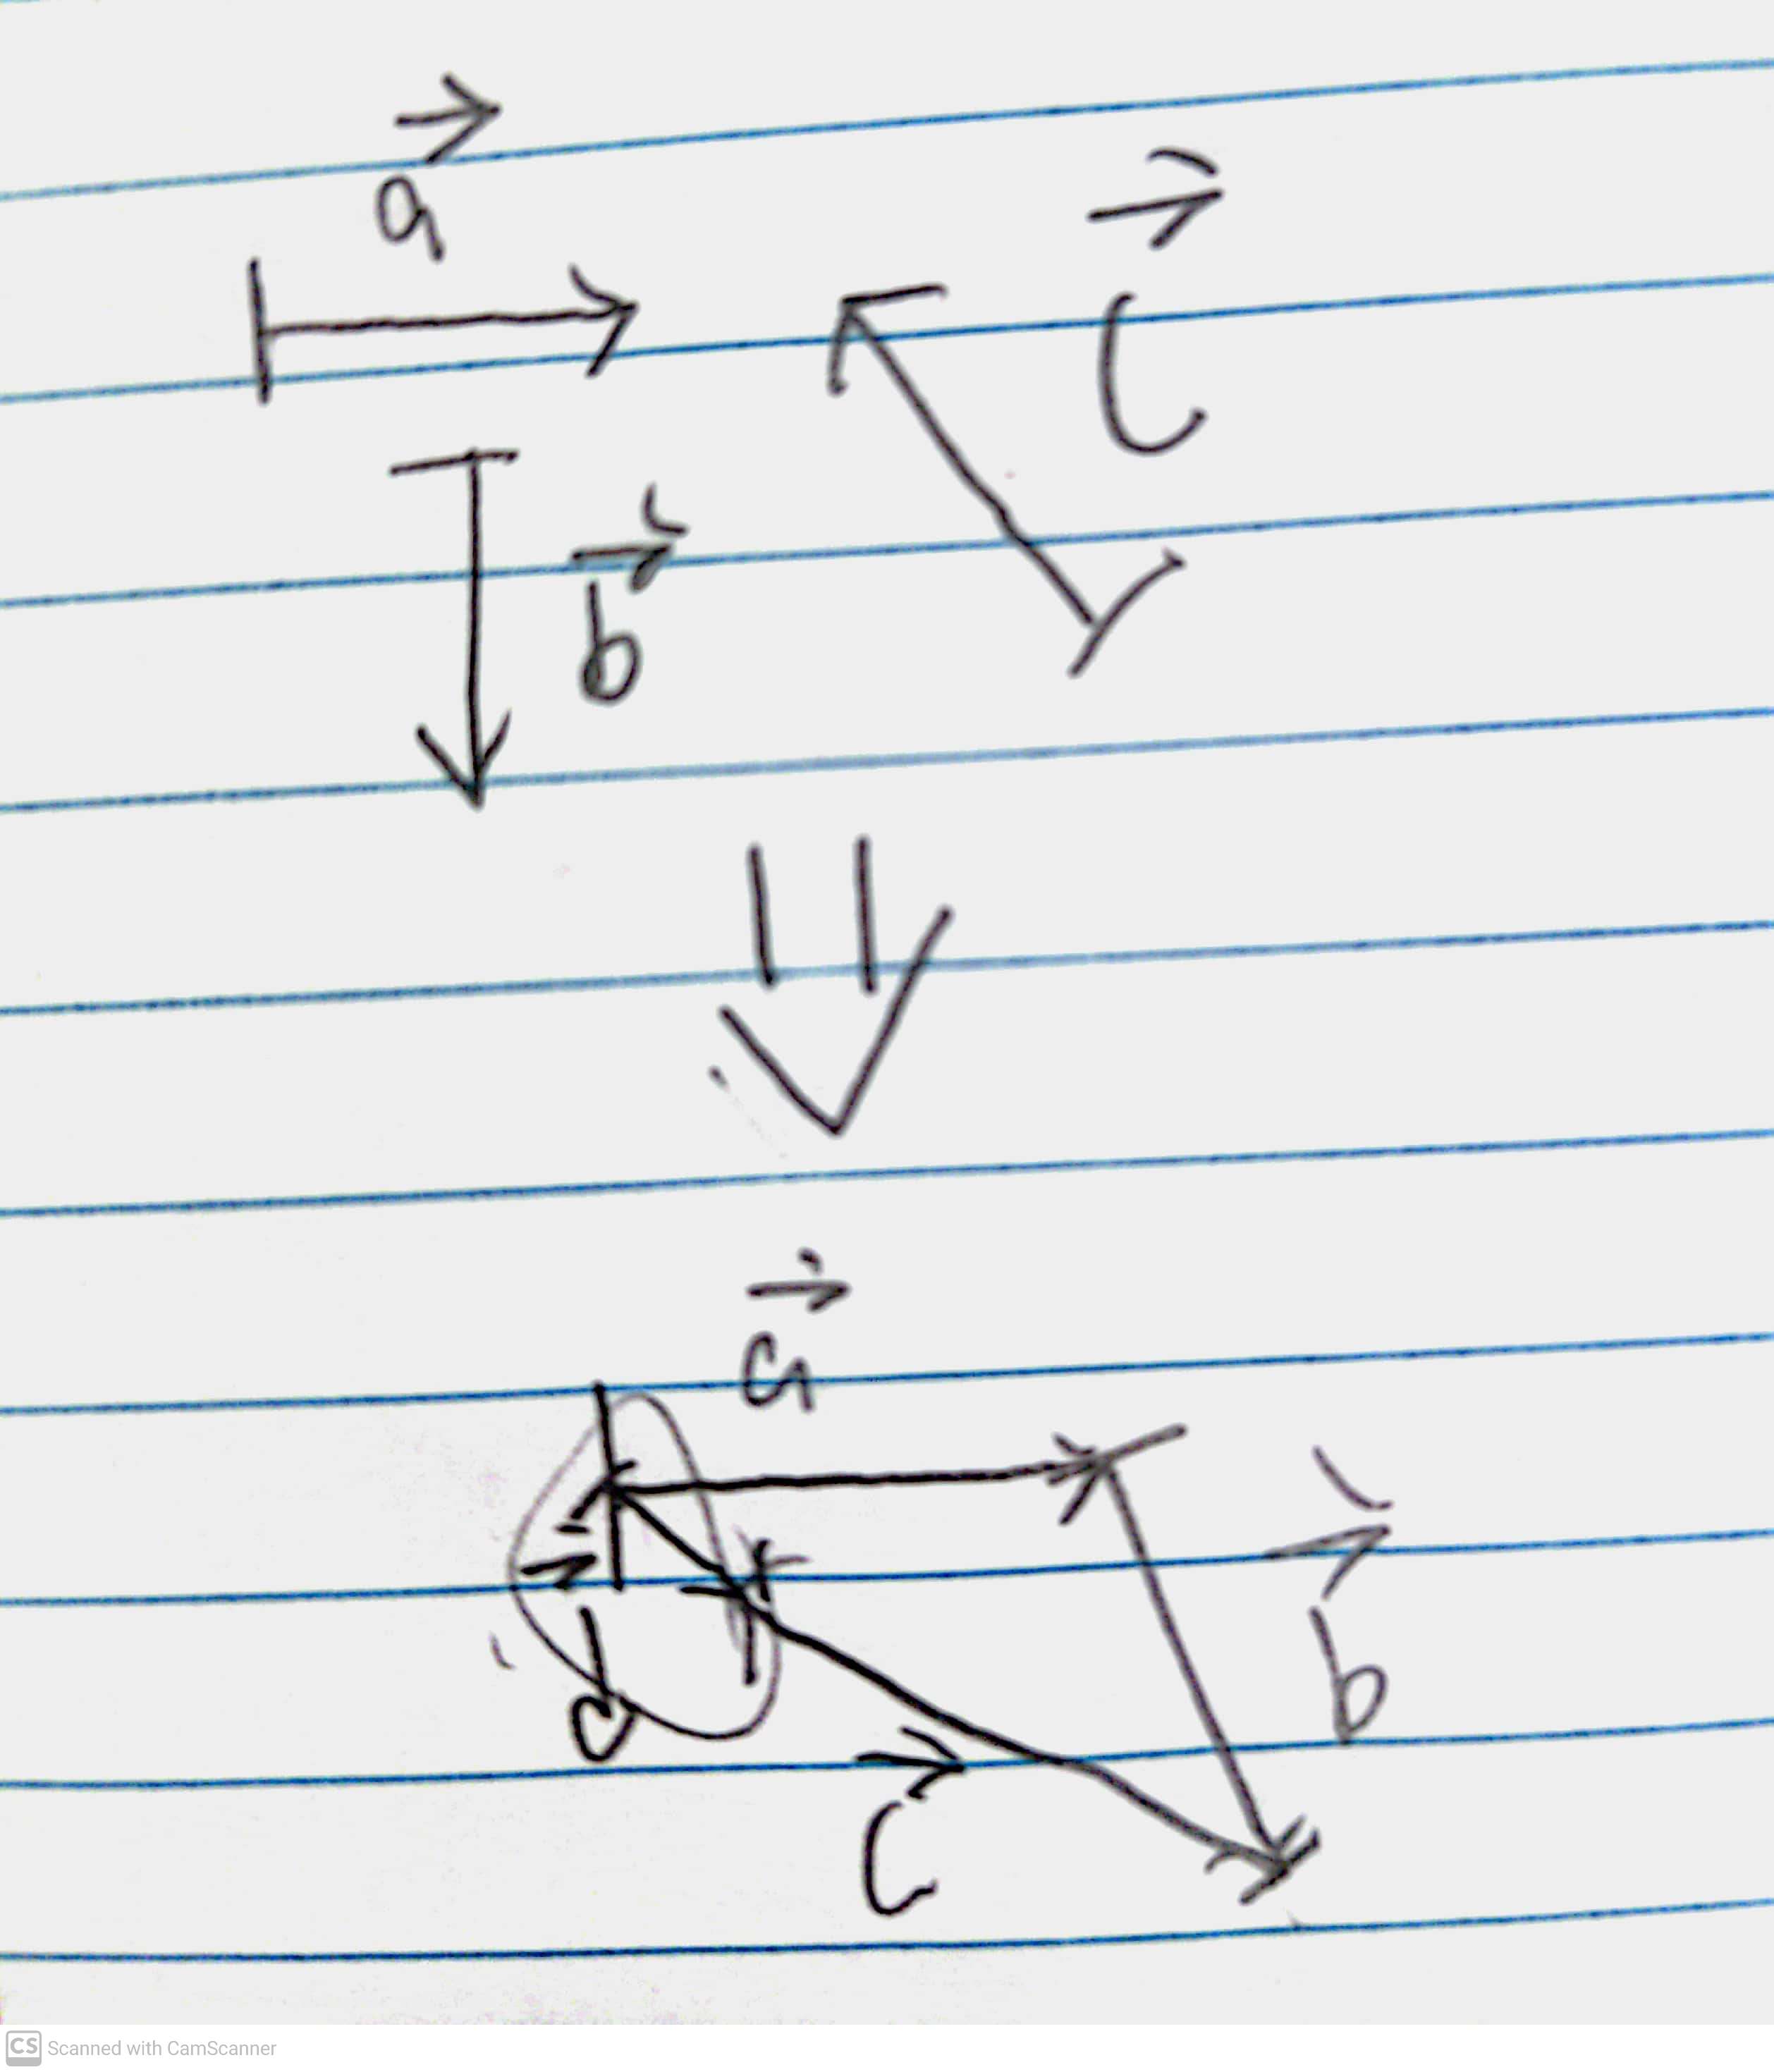 a⃗
c⃗
b⃗
a⃗
b⃗
d⃗
c⃗
CS Scanned with CamScanner